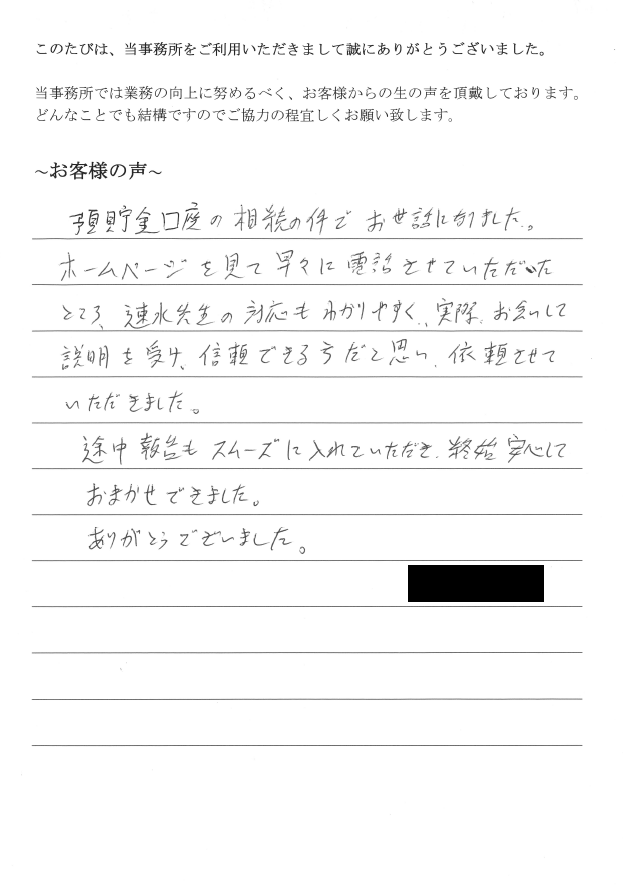 このたびは、当事務所をご利用いただきまして誠にありがとうございました。
当事務所では業務の向上に努めるべく、お客様からの生の声を頂戴しております。
どんなことでも結構ですのでご協力の程宜しくお願い致します。
~お客様の声~
預貯金口座の相続の件でお世話になりました。
ホームページを見て早々に電話させていただいた
ところ、速水先生の対応もわかりやすく、実際、お会いして
説明を受け、信頼できる方だと思い、依頼させて
いただきました。
途中報告もスムーズに入れていただき、終始安心して
おまかせできました。
ありがとうございました。